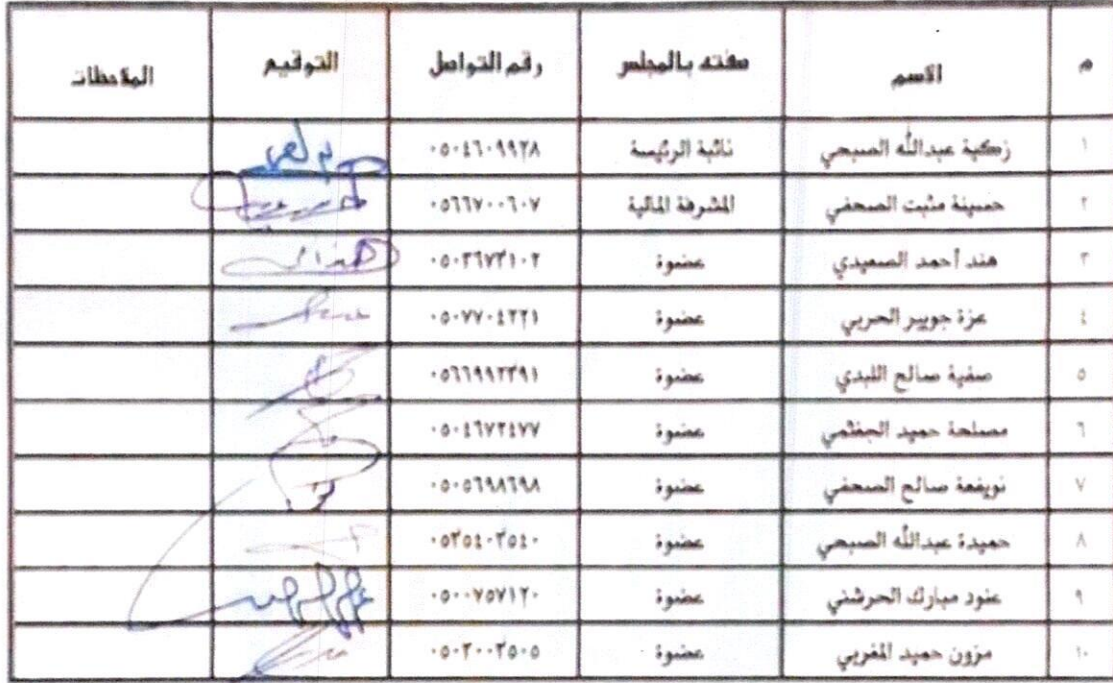 م الاسم صفته بالمجلس رقم التواصل التوقيع الملاحظات
١ زكية عبدالله الصبحي نائبة الرئيسة ٠٥٠٤٦٠٩٩٢٨
٢ حسينة مثبت الصحفي المشرفة المالية ٠٥٦٦٧٠٠٦٠٧
٣ هند أحمد الصعيدي عضوة ٠٥٠٣٦٧٣١٠٢
٤ عزة جويبر الحربي عضوة ٠٥٠٧٧٠٤٢٢١
٥ صفية صالح اللبدي عضوة ٠٥٦٦٩٩٢٣٩١
٦ مصلحة حميد الجغثمي عضوة ٠٥٠٤٦٧٢٤٧٧
٧ نويفعة صالح الصحفي عضوة ٠٥٠٥٦٩٨٦٩٨
٨ حميدة عبدالله الصبحي عضوة ٠٥٣٥٤٠٣٥٤٠
٩ عنود مبارك الحرشني عضوة ٠٥٠٠٧٥٧١٢٠
١٠ مزون حميد المغربي عضوة ٠٥٠٢٠٠٣٥٠٥